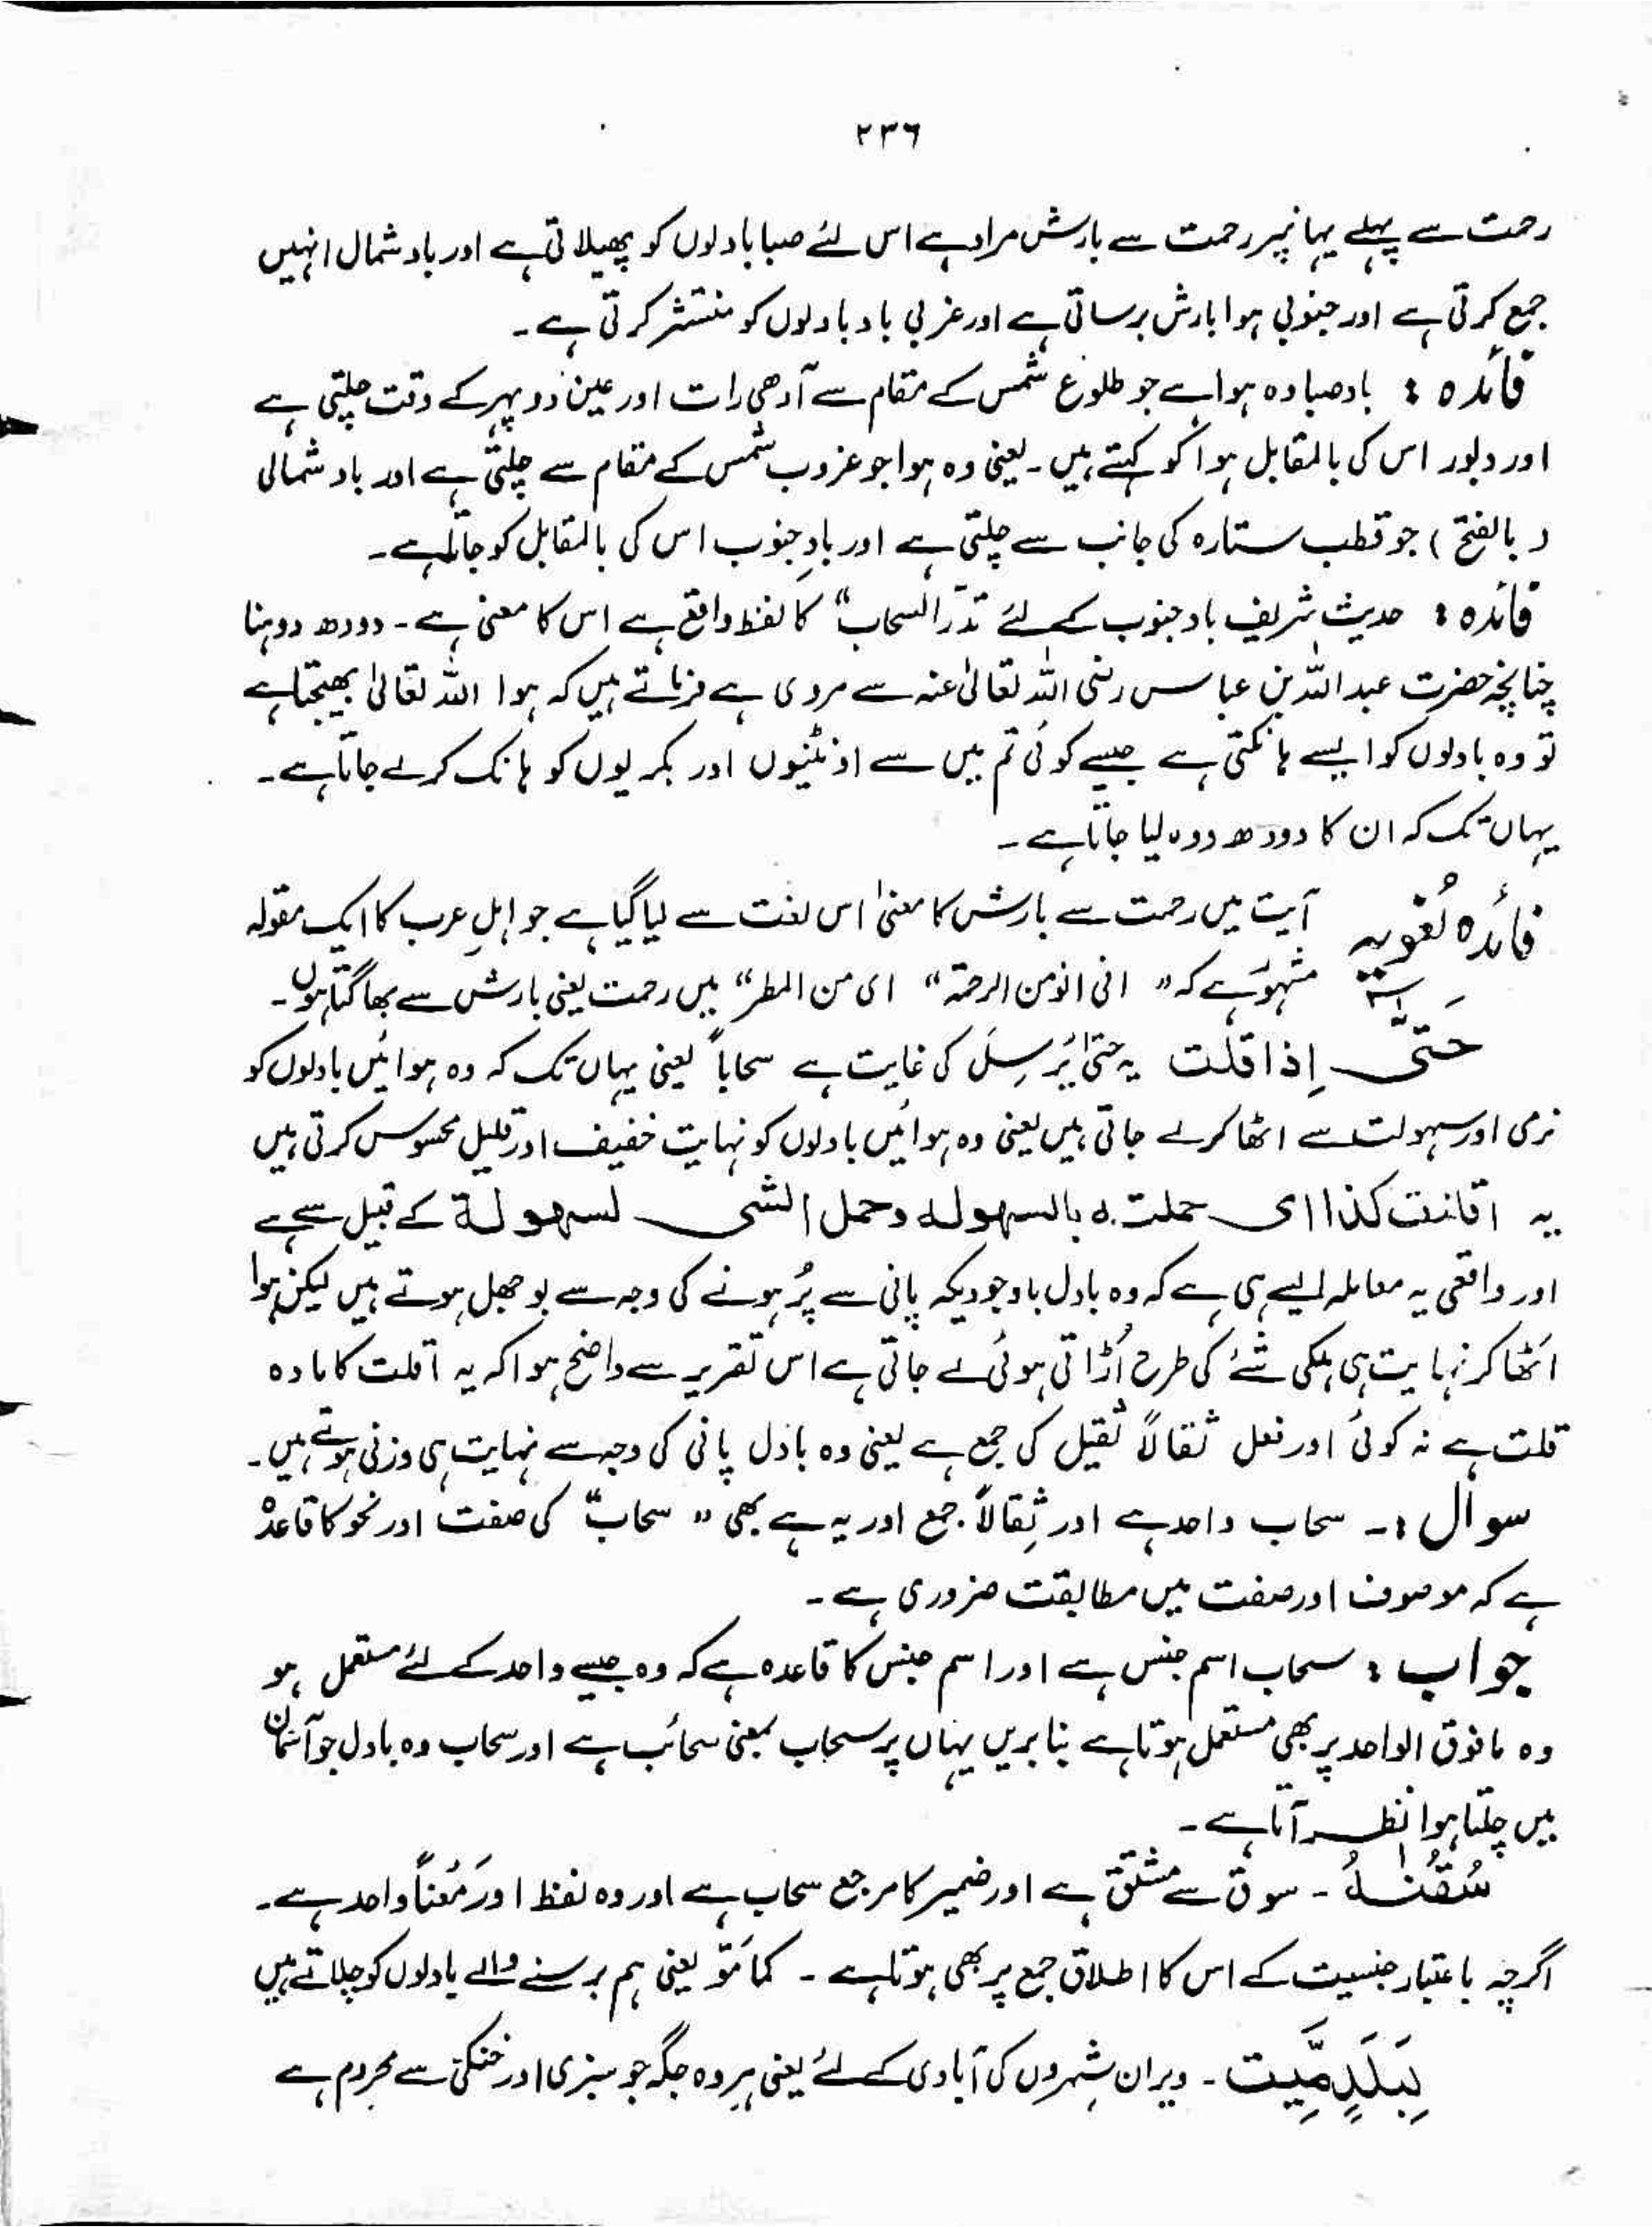 ۲۳۶
رحمت سے پہلے یہانپر رحمت سے بارش مراد ہے اس لئے صبا بادلوں کو پھیلاتی ہے اور باد شمال انہیں
جمع کرتی ہے اور جنوبی ہوا بارش برساتی ہے اور غربی باد بادلوں کو منتشر کرتی ہے۔
فائدہ : باد صبا وہ ہوا ہے جو طلوع شمس کے مقام سے آدھی رات اور عین دوپہر کے وقت چلتی ہے
اور دبور اس کی بالمقابل ہوا کو کہتے ہیں۔ یعنی وہ ہوا جو غروب شمس کے مقام سے چلتی ہے اور باد شمالی
( بالفتح ) جو قطب ستارہ کی جانب سے چلتی ہے اور بادِ جنوب اس کی بالمقابل کو جاتا ہے۔
فائدہ : حدیث شریف باد جنوب کے لئے تدرّ السحاب“ کا لفظ واقع ہے اس کا معنی ہے۔ دودھ دوہنا
چنانچہ حضرت عبد اللہ بن عباس رضی اللہ تعالیٰ عنہ سے مروی ہے فرماتے ہیں کہ ہوا اللہ تعالیٰ بھیجتا ہے
تو وہ بادلوں کو ایسے ہانکتی ہے جیسے کوئی تم میں سے اونٹنیوں اور بکریوں کو ہانک کر لے جاتا ہے۔
یہاں تک کہ ان کا دودھ دوہ لیا جاتا ہے۔
فائدہ لُغویہ آیت میں رحمت سے بارش کا معنیٰ اس لغت سے لیا گیا ہے جو اہلِ عرب کا ایک مقولہ
مشہور ہے کہ ” انی انومن الرحمۃ “ ای من المطر“ میں رحمت یعنی بارش سے بھاگتا ہوں۔
حَتّٰی اِذا اقلت یہ حتیٰ یُرسِلَ کی غایت ہے سحاباً یعنی یہاں تک کہ وہ ہوائیں بادلوں کو
نرمی اور سہولت سے اٹھا کر لے جاتی ہیں یعنی وہ ہوائیں بادلوں کو نہایت خفیف اور قلیل محسوس کرتی ہیں
یہ اقلنت کذا ای حملتہ بالسہولہ وحمل الشی لسہولة کے قبیل سے ہے
اور واقعی یہ معاملہ ایسے ہی ہے کہ وہ بادل باوجودیکہ پانی سے پُر ہونے کی وجہ سے بوجھل ہوتے ہیں لیکن ہوا
اٹھا کر نہایت ہی ہلکی شئے کی طرح اُڑاتی ہوئی لے جاتی ہے اس تقریر سے واضح ہوا کہ یہ اقلت کا مادہ
قلت ہے نہ کوئی اور فعل ثقالاً ثقیل کی جمع ہے یعنی وہ بادل پانی کی وجہ سے نہایت ہی وزنی ہوتے ہیں۔
سوال :۔ سحاب واحد ہے اور ثِقالاً جمع اور یہ ہے بھی ” سحاب“ کی صفت اور نحو کا قاعدہ
ہے کہ موصوف اور صفت میں مطابقت ضروری ہے۔
جواب : سحاب اسم جنس ہے اور اسم جنس کا قاعدہ ہے کہ وہ جیسے واحد کے لئے مستعمل ہو
وہ مافوق الواحد پر بھی مستعمل ہوتا ہے بنا بریں یہاں پر سحاب بمعنی سحائب ہے اور سحاب وہ بادل جو آسمان
میں چلتا ہوا نظر آتا ہے۔
سُقْنٰہُ ۔ سوق سے مشتق ہے اور ضمیر کا مرجع سحاب ہے اور وہ لفظ اور مَعناً واحد ہے۔
اگرچہ باعتبار جنسیت کے اس کا اطلاق جمع پر بھی ہوتا ہے ۔ کمامَرّ یعنی ہم برسنے والے بادلوں کو چلاتے ہیں
لِبَلَدٍ مَّیِّت ۔ ویران شہروں کی آبادی کے لئے یعنی ہر وہ جگہ جو سبزی اور خنکی سے محروم ہے